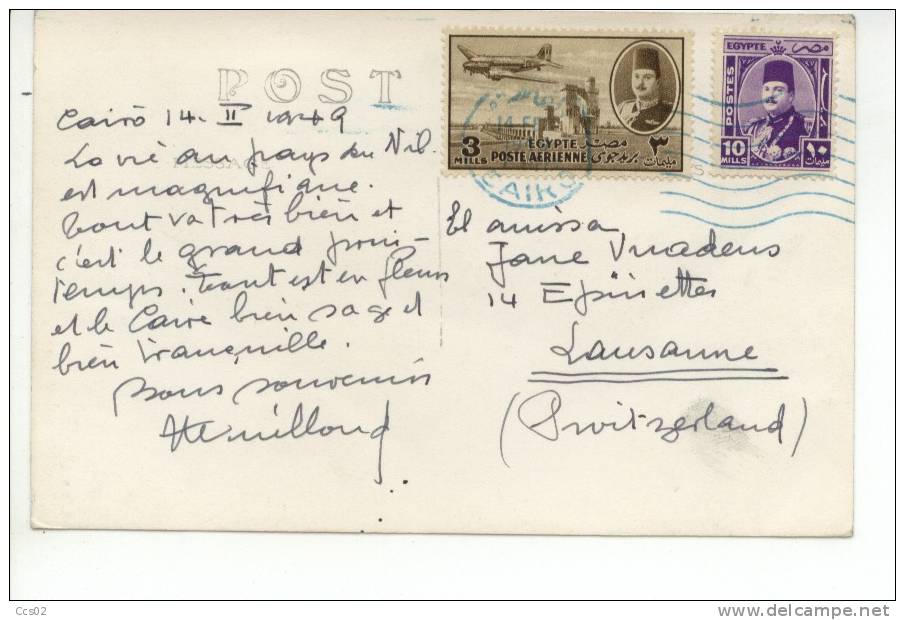 POST
Cairo 14. II 1949
La vie au pays du Nil
est magnifique.
Tout va très bien et
c'est le grand prin-
temps. Tout est en fleurs
et le Caire bien sage et
bien tranquille.
Bons souvenirs
EGYPTE
مصر
POSTE AÉRIENNE بريد جوى
3
MILLS
٣
مليمات
CAIRO
EGYPTE مصر
POSTES
10
MILLS
١٠
مليمات
El
Jane
14 Epinettes
Lausanne
(Switzerland)
Ccs02
www.delcampe.net